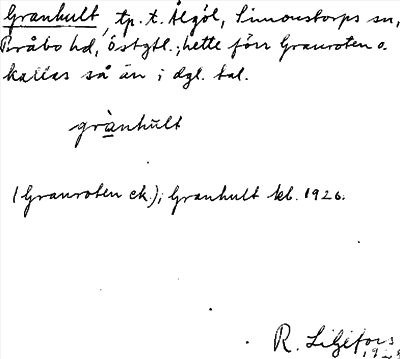 Granhult, tp. t. Älgöl, Simonstorps sn,
Bråbo hd, Östgtl.; hette förr Granroten o.
kallas så än i dgl. tal.
grànhult
(Granroten ek.); Granhult kb. 1926.
R. Liljefors